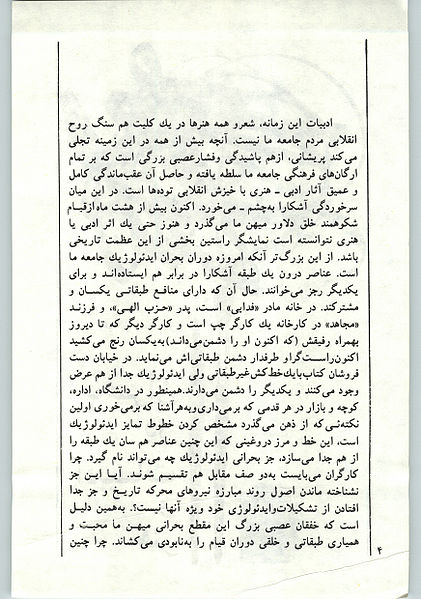 ادبیات این زمانه، شعرو همه هنرها در یك کلیت هم سنگ روح
انقلابی مردم جامعه ما نیست. آنچه بیش از همه در این زمینه تجلی
می‌کند پریشانی، ازهم پاشیدگی وفشارعصبی بزرگی است که بر تمام
ارگان‌های فرهنگی جامعه ما سلطه یافته و حاصل آن عقب‌ماندگی کامل
و عمیق آثار ادبی ـ هنری با خیزش انقلابی توده‌ها است. در این میان
سرخوردگی آشکارا به‌چشم ـ می‌خورد. اکنون بیش از هشت ماه ازقیام
شکوهمند خلق دلاور میهن ما می‌گذرد و هنوز حتی یك اثر ادبی یا
هنری نتوانسته است نمایشگر راستین بخشی از این عظمت تاریخی
باشد. از این بزرگ‌تر آنکه امروزه دوران بحران ایدئولوژیك جامعه ما
است. عناصر درون یك طبقه آشکارا در برابر هم ایستاده‌اند و برای
یکدیگر رجز می‌خوانند. حال آن که دارای منافع طبقاتی یکسان و
مشترکند. در خانه مادر «فدایی» است، پدر «حزب الهی»، و فرزند
«مجاهد» در کارخانه یك کارگر چپ است و کارگر دیگر که تا دیروز
بهمراه رفیقش (که اکنون او را دشمن می‌داند)به‌یکسان رنج می‌کشید
اکنون‌راست‌گراو طرفدار دشمن طبقاتی‌اش می‌نماید. در خیابان دست
فروشان کتاب‌بایك‌خط‌کش‌غیرطبقاتی ولی ایدئولوژیك جدا از هم عرض
وجود می‌کنند و یکدیگر را دشمن می‌دارند.همینطور در دانشگاه، اداره،
کوچه و بازار در هر قدمی که برمی‌داری‌وبه‌هرآشنا که برمی‌خوری اولین
نکته‌ئی‌که از ذهن می‌گذرد مشخص کردن خطوط تمایز ایدئولوژیك
است، این خط و مرز دروغینی که این چنین عناصر هم سان یك طبقه را
از هم جدا می‌سازد، جز بحرانی ایدئولوژیك چه می‌تواند نام گیرد. چرا
کارگران می‌بایست به‌دو صف مقابل هم تقسیم شوند. آیا این جز
نشناخته ماندن اصول روند مبارزه نیروهای محرکه تاریخ و جز جدا
افتادن از تشکیلات‌وایدئولوژی خود ویژه آنها نیست؟. به‌همین دلیل
است که خفقان عصبی بزرگ این مقطع بحرانی میهن ما محبت و
همیاری طبقاتی و خلقی دوران قیام را به‌نابودی می‌کشاند. چرا چنین
۴